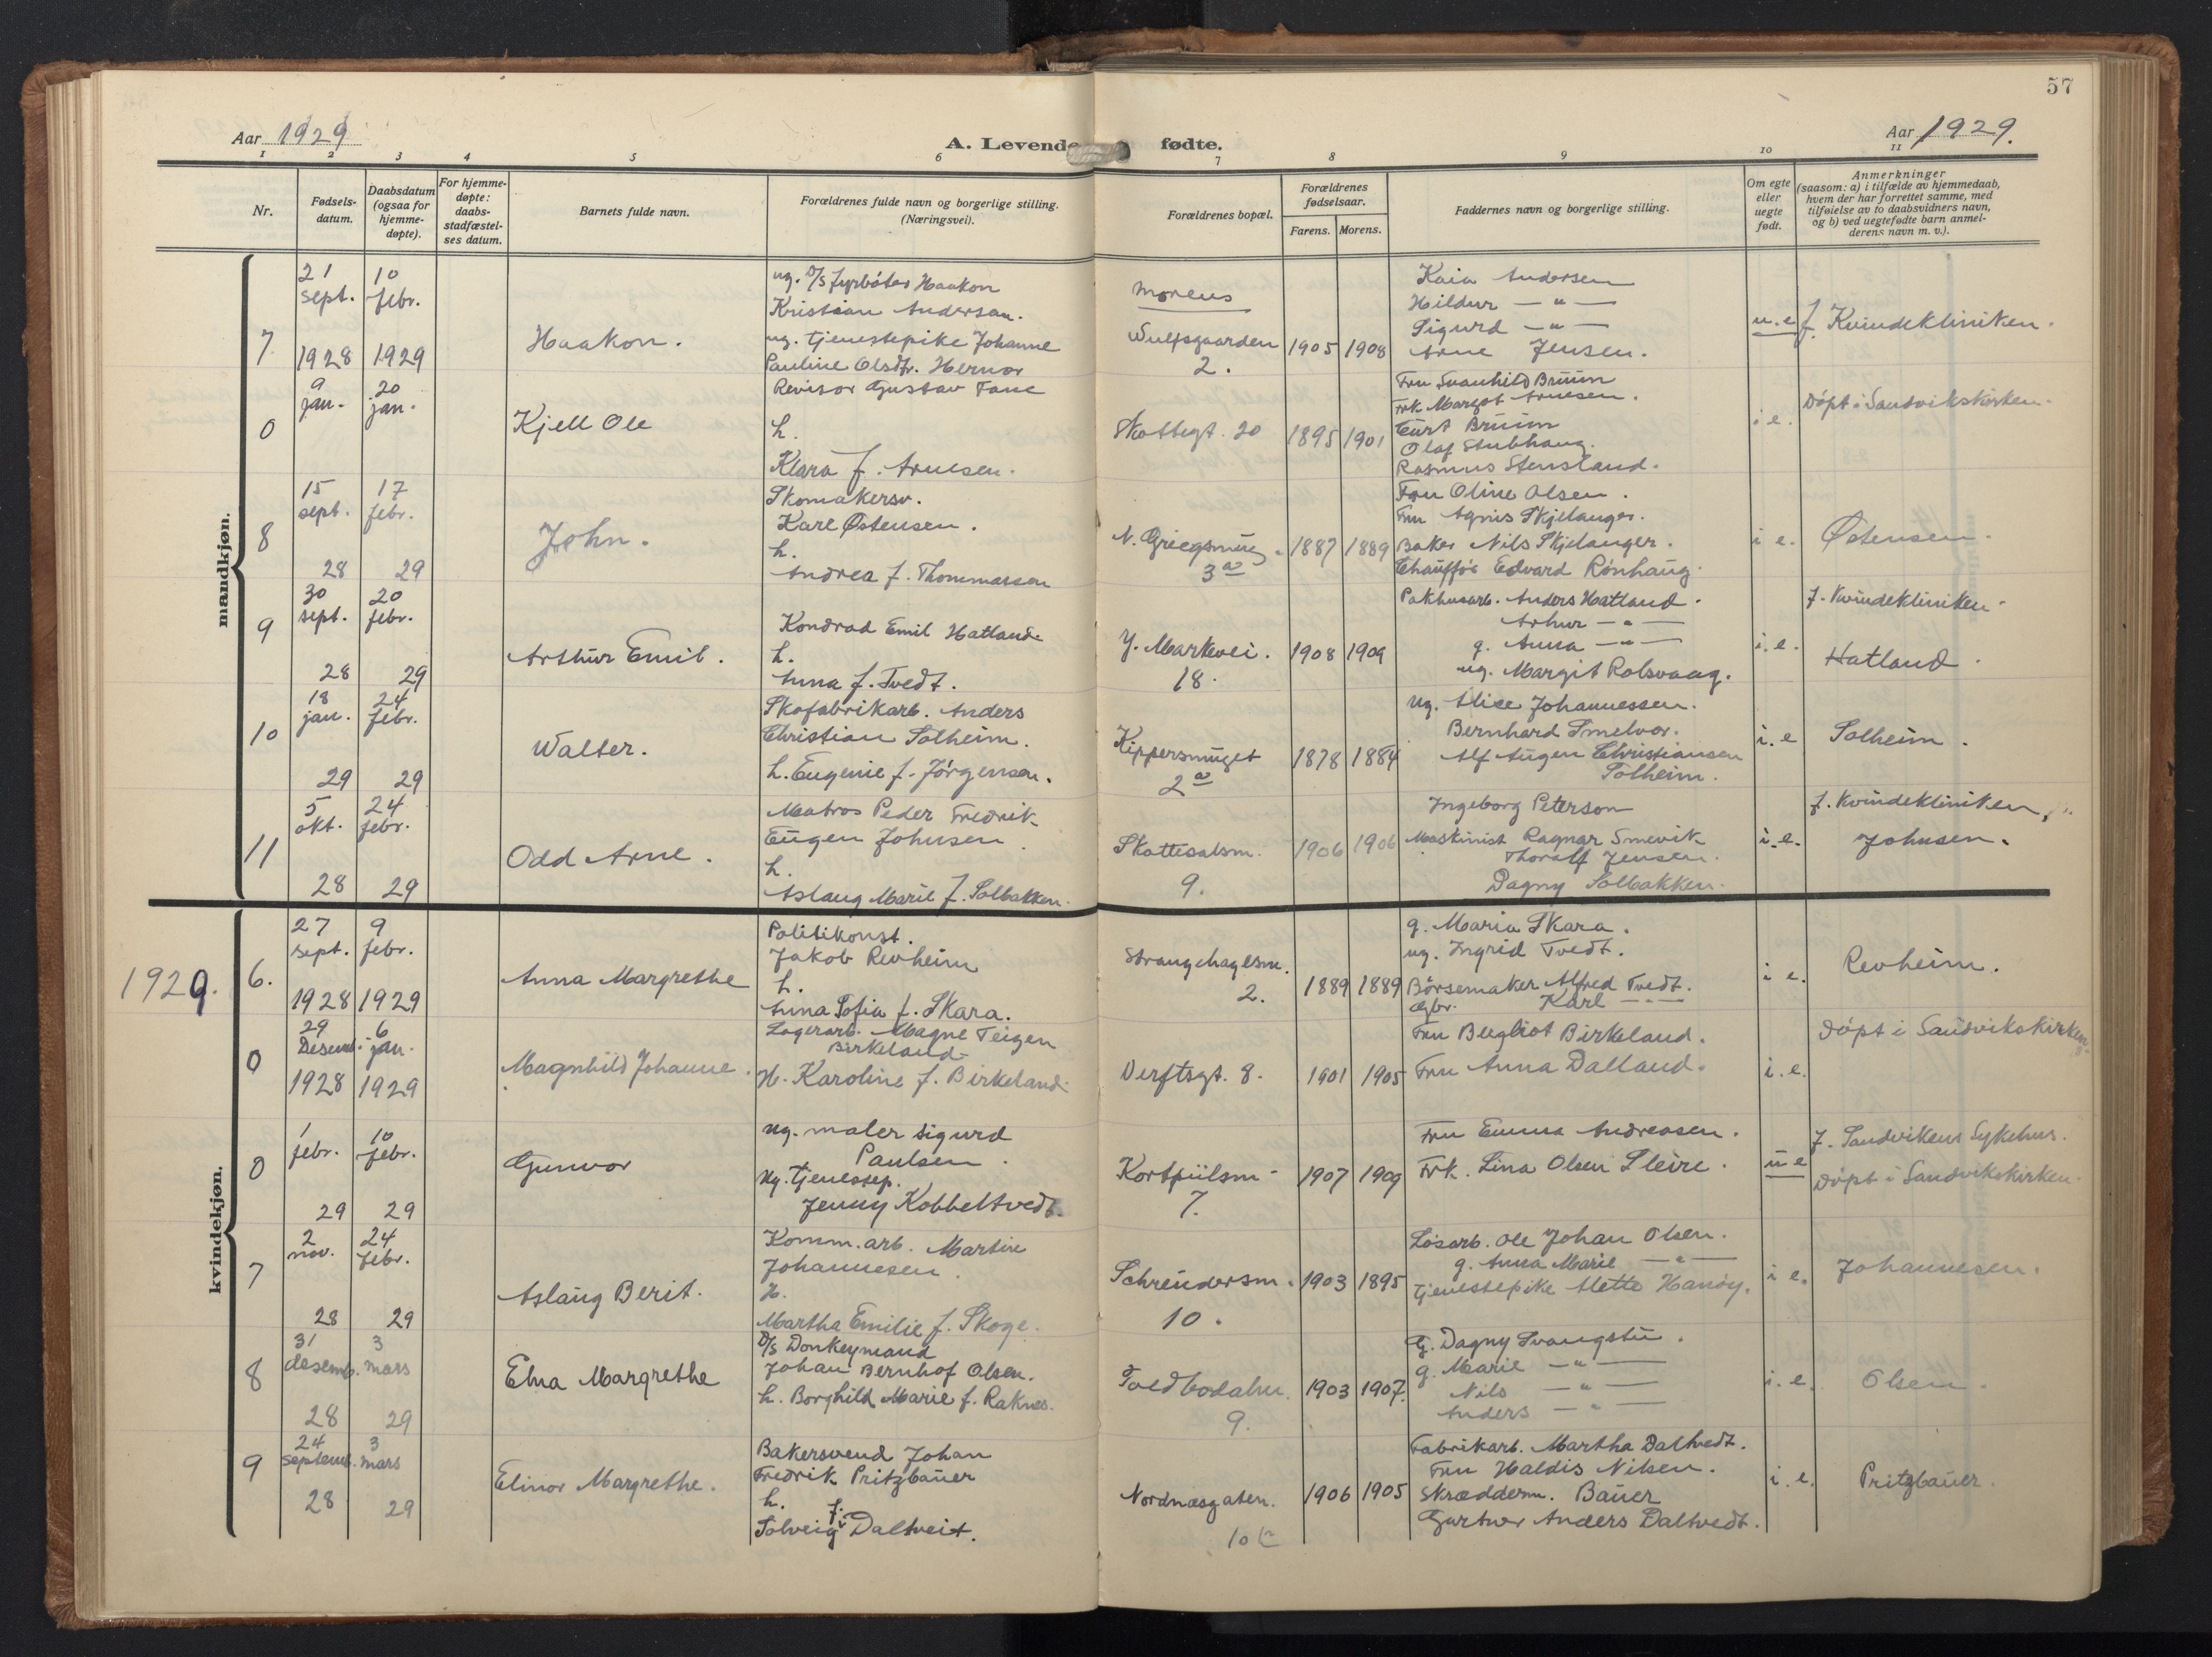 57
Aar 1929
A. Levende fødte.
Aar 1929.
1 2 3 4 5 6 7 8 9 10 11
Nr.
Fødsels-
datum.
Daabsdatum
(ogsaa for
hjemme-
døpte).
For hjemme-
døpte:
daabs-
stadfæstel-
ses datum.
Barnets fulde navn.
Forældrenes fulde navn og borgerlige stilling.
(Næringsvei).
Forældrenes bopæl.
Forældrenes
fødselsaar.
Farens. Morens.
Faddernes navn og borgerlige stilling.
Om egte
eller
uegte
født.
Anmerkninger
(saasom: a) i tilfælde av hjemmedaab,
hvem der har forrettet samme, med
tilføielse av to daabsvidners navn,
og b) ved uegtefødte barn anmel-
derens navn m. v.).
mandkjøn.
7
21 sept. 1928
10 febr. 1929
Haakon.
ug. D/S fyrbøter Haakon
Kristian Andersen.
ug. tjenestepike Johanne
Pauline Olsdtr. Hernar
Morens
Wulfsgaarden
2.
1905 1908
Kaia Andersen
Hildur — " —
Sigurd — " —
Arne Jensen.
u.e
f. Kvindekliniken.
0
9 jan.
20 jan.
Kjell Ole
Revisor Gustav Fane
h.
Klara f. Arnesen.
Skottegt. 20
1895 1901
Fru Svanhild Brüün
Frk. Margot Arnesen.
Curt Brüün
Olaf Stubhaug.
Rasmus Stensland.
i e.
Døpt i Sandvikskirken.
8
15 sept. 28
17 febr. 29
John.
Skomakersv.
Karl Østensen.
h.
Andrea f. Thommassen
N. Griegsmug.
3 a
1887 1889
Fru Oline Olsen.
Fru Agnis Skjelanger.
Baker Nils Skjelanger.
Chauffør Edvard Rønhaug.
i e.
Østensen.
9
30 sept. 28
20 febr. 29
Arthur Emil.
Kondrad Emil Hatland.
h.
Anna f. Tvedt.
Y. Markvei.
18.
1908 1909
Pakhusarb. Anders Hatland.
Arhur — " —
g. Anna — " —
ug. Margit Rolsvaag.
i.e.
f. Kvindekliniken.
Hatland.
10
18 jan. 29
24 febr. 29
Walter.
Skofabrikarb. Anders
Christian Solheim.
h. Eugenie f. Jørgensen.
Kippersmuget
2 a
1878 1884
ug. Alice Johannessen.
Bernhard Smelvor.
Alf Augen Christiansen
Solheim.
i.e
Solheim.
11
5 okt. 28
24 febr. 29
Odd Arne.
Matros Peder Fredrik
Eugen Johnsen.
h.
Aslaug Marie f. Solbakken.
Skottesalsm.
9.
1906 1906
Ingeborg Peterson
Maskinist Ragnar Smevik
Thoralf Jensen.
Dagny Solbakken.
i.e.
f. Kvindekliniken,
Johnsen.
1929.
kvindekjøn.
6.
27 sept. 1928
9 febr. 1929
Anna Margrethe
Politikonst.
Jakob Revheim
h.
Anna Sofia f. Skara.
Strangehagesm.
2.
1889 1889
g. Maria Skara.
ug. Ingrid Tvedt.
Børsemaker Alfred Tvedt.
Gbr. Karl — " —
i e.
Revheim.
0
29 Desemb. 1928
6 jan. 1929
Magnhild Johanne.
Lagerarb. Magne Teigen
Birkeland.
H. Karoline f. Birkeland.
Verftsgt. 8.
1901 1905
Fru Bergliot Birkeland.
Fru Anna Dalland.
i.e.
Døpt i Sandvikskirken
0
1 febr. 29
10 febr. 29
Gunvor
ug. maler Sigurd
Paulsen.
Ug. tjenestep.
Jenny Kobbeltvedt.
Kortpiilsm.
7.
1907 1909
Fru Emma Andreasen.
Frk. Lina Olsen Sleire.
u e
f. Sandvikens Sykehus.
Døpt i Sandvikskirken.
7
2 nov. 28
24 febr. 29
Aslaug Berit.
Komm. arb. Martin
Johannesen.
H.
Martha Emilie f. Skoge.
Schreudersm.
10.
1903 1895
Løsarb. Ole Johan Olsen.
g. Anna Marie — " —
Tjenestepike Mette Hanøy.
i e.
Johannesen.
8
31 desemb. 28
3 mars 29
Elna Margrethe
D/S Donkeymand
Johan Bernhof Olsen.
h. Borghild Marie f. Raknes.
Toldbodalm.
9.
1903 1907.
G. Dagny Svangstu.
g. Marie — " —
Nils — " —
Anders — " —
i.e.
Olsen.
9
24 septemb. 28
3 mars 29
Elinor Margrethe.
Bakersvend Johan
Fredrik Pritzbauer
h.
Solveig f. Daltveit.
Nordnæsgaten.
10
1906 1905
Fabrikarb. Martha Daltvedt.
Fru Haldis Nilsen.
Skræderm. Bauer
Gartner Anders Daltvedt.
i.e.
Pritzbauer.